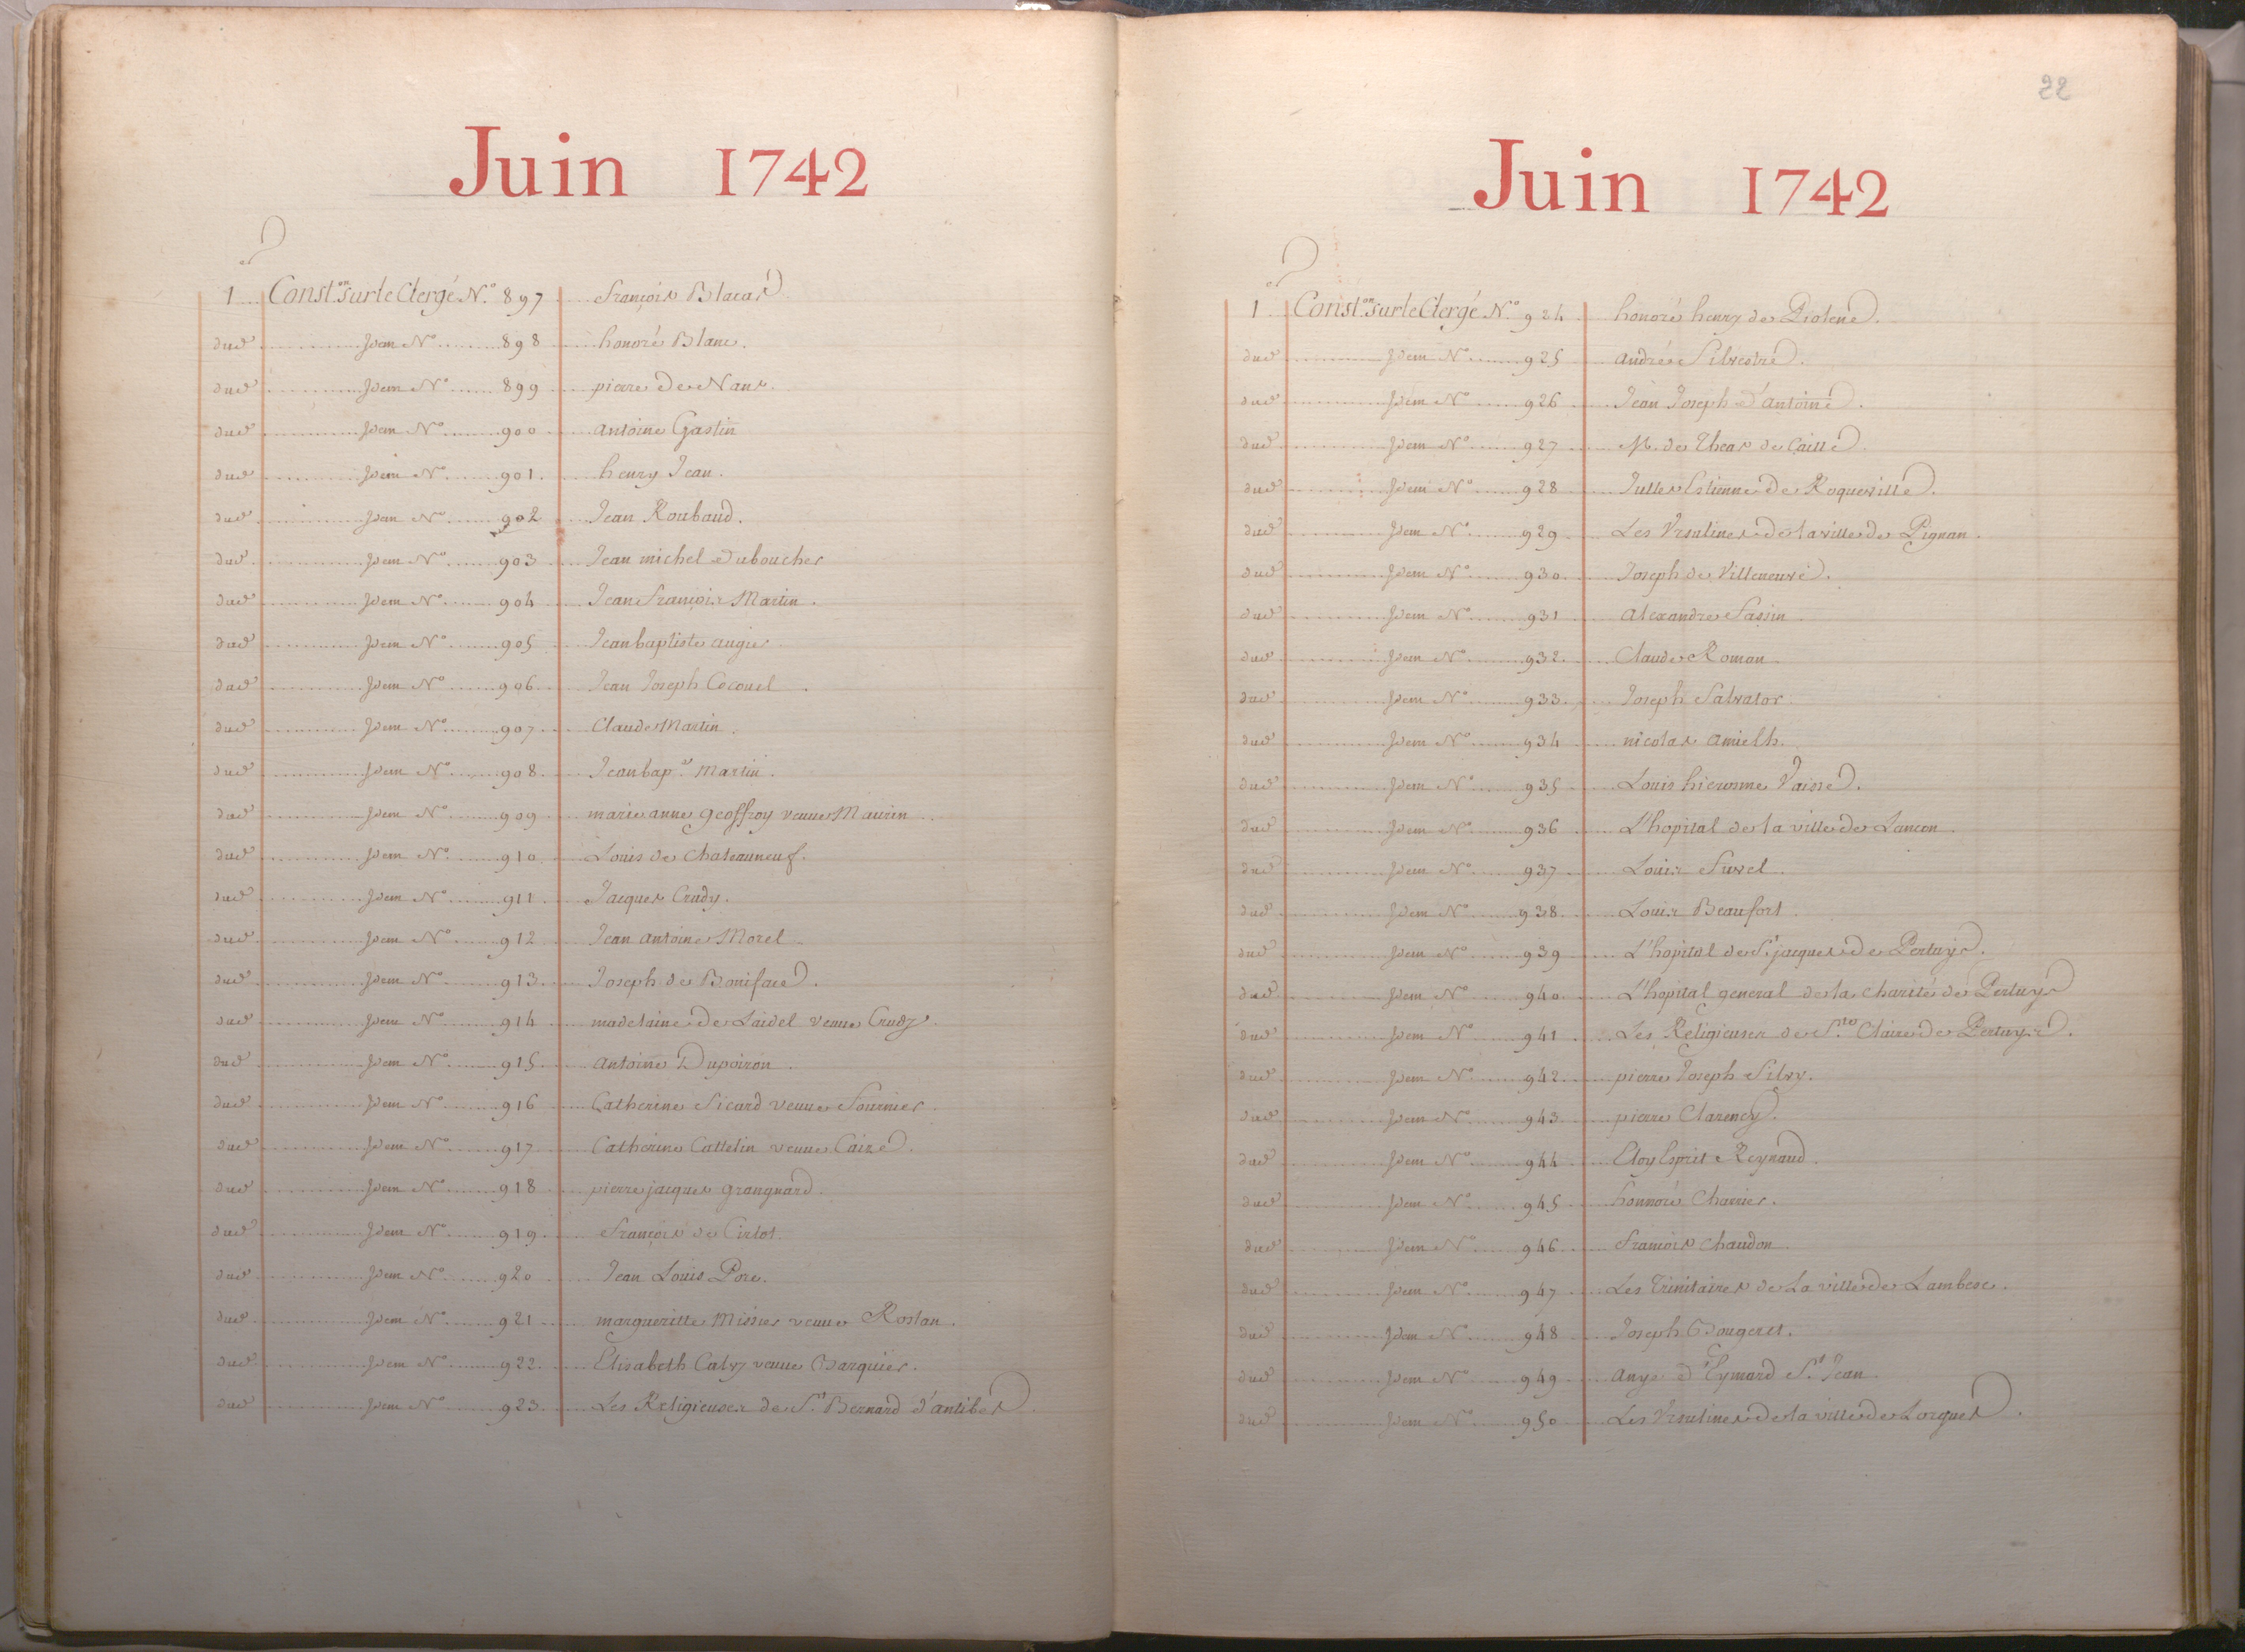 Juin 1742
1er Conston sur le Clergé No. 897 françois Blacas
dud Idem No 898 honoré Blanc.
dud Idem No 899 pierre de Nans.
dud Idem No 900 antoine Gastin
dud Idem No 901. henry Jean.
dud Idem No 902 Jean Roubaud.
dud Idem No 903 Jean michel Duboucher
dud Idem No 904 Jean françois Martin.
dud Idem No 905 Jean baptiste augier
dud Idem No 906 Jean Joseph Coconel
dud Idem No 907 Claude Martin.
dud Idem No 908. Jean bapte Martin.
dud Idem No 909 marie anne geoffroy veuve Maurin
dud Idem No 910 Louis de Chateauneuf.
dud Idem No 911 Jacques Crudy.
dud Idem No 912 Jean antoine Morel
dud Idem No 913 Joseph de Boniface.
dud Idem No 914 madelaine de Laidet veuve Crudy.
dud Idem No 915 antoine Dupoiron.
dud Idem No 916 Catherine Sicard veuve Fournier.
dud Idem No 917 Catherine Cattelin veuve Caire.
dud Idem No 918 pierre jacques grangnard.
dud Idem No 919 françois de Cirlot.
dud Idem No 920 Jean Louis Pore.
dud Idem No 921 margueritte Missier veuve Rostan.
dud Idem No 922. Elisabeth Calvy veuve Barquier.
dud Idem No 923 Les Religieuses de St Bernard d'antibes.
22
Juin 1742
1er Conston sur le Clergé No 924 honoré henry de Piolene.
dud Idem No 925 andrée Silvestre.
dud Idem No 926 Jean Joseph d'antoine.
dud Idem No 927 M. de Theas de Caille.
dud Idem No 928 Julles Estienne de Roqueville.
dud Idem No 929 Les Ursulines de la ville de Pignan.
dud Idem No 930 Joseph de Villeneuve.
dud Idem No 931 alexandre Fassin
dud Idem No 932. Claude Roman
dud Idem No 933 Joseph Salvator
dud Idem No 934 nicolas amielh.
dud Idem No 935 Louis hierosme Vaisse.
dud Idem No 936 L'hopital de la ville de Lancon.
dud Idem No 937 Louis Furel
dud Idem No 938 Louis Beaufort.
dud Idem No 939 L'hopital de St jacques de Pertuys.
dud Idem No 940 L'hopital general de la charité de Pertuys
dud Idem No 941 Les Religieuses de Ste Claire de Pertuys.
dud Idem No 942. pierre Joseph Silvy.
dud Idem No 943 pierre Clarency.
dud Idem No 944 Eloy Esprit Reynaud.
dud Idem No 945 honnoré Charrier.
dud Idem No 946 françois chaudon
dud Idem No 947 Les Trinitaires de La ville de Lambesc.
dud Idem No 948 Joseph Bougerel.
dud Idem No 949 ange d'Eymard St Jean
dud Idem No 950 Les Ursulines de la ville de Lorgues.